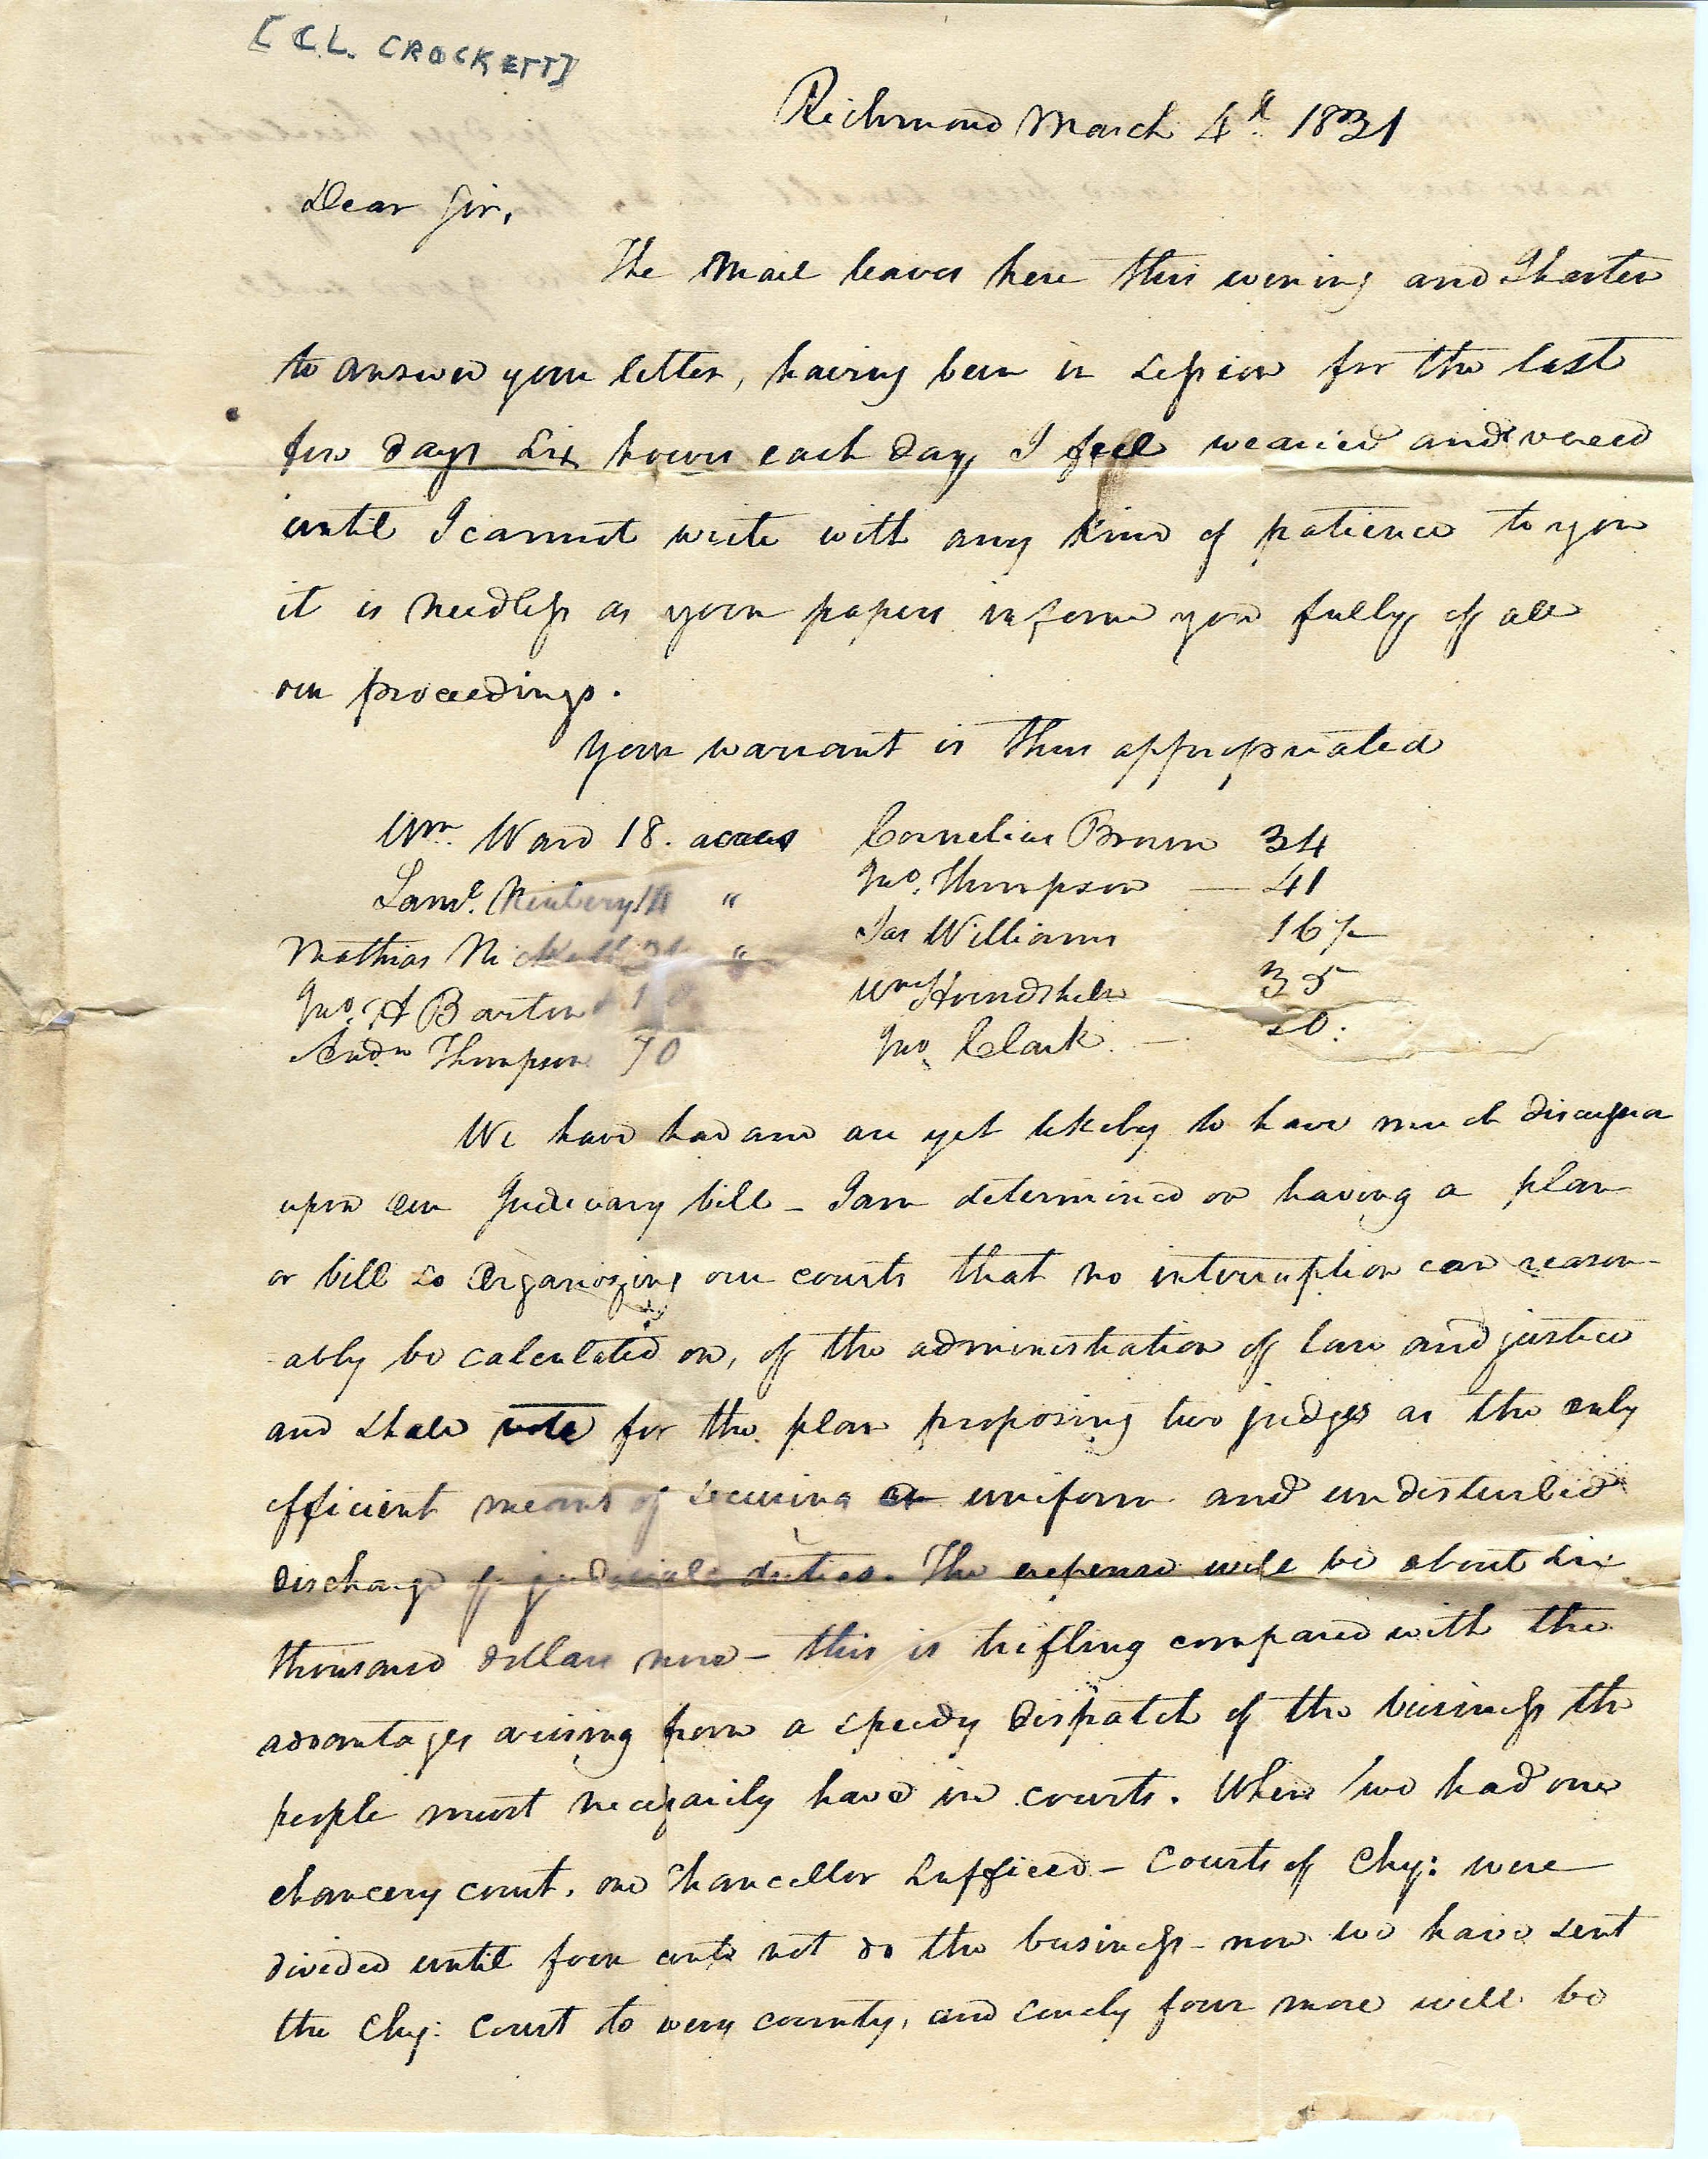 [C.L. CROCKETT]
Richmond March 4th 1831
Dear Sir,
The Mail leaves here this evening and I hasten
to answer your letter, having been in session for the last
few days six hours each day I feel wearied and vexed
until I cannot write with any kind of patience to you
it is needless as your papers inform you fully of all
our proceedings.
Your warrant is thus appropriated
Wm. Ward 18. acres Cornelius Brown 34
Saml. " Jno. Thompson — 41
Mathias " Jas Williams 16½
Jno. A Barton Wm 35
Andw Thompson 70 Jno Clark. — 20.
We have had and are yet likely to have much discussion
upon our Judiciary bill – I am determined on having a plan
or bill so organizing our courts that no interruption can reason-
ably be calculated on, of the administration of law and justice
and shall vote for the plan proposing two judges as the only
efficient means of securing an uniform and undisturbed
discharge of judicial duties. The expense will be about six
thousand dollars more – this is trifling compared with the
advantages arising from a speedy dispatch of the business the
people must necessarily have in courts. When we had one
chancery court, one chancellor sufficed – Courts of Chy: were
divided until four could not do the business – now we have sent
the Chy: Court to every county, and surely four more will be